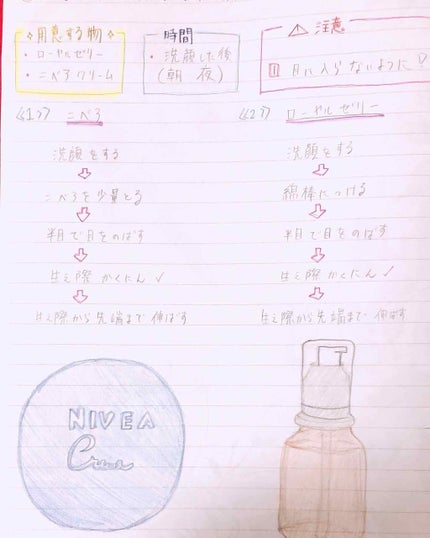 用意する物
・ローヤルゼリー
・ニベアクリーム
時間
・洗顔した後
(朝 夜)
⚠ 注意
目に入らないように
《1》 ニベア
洗顔をする
⇩
ニベアを少量とる
⇩
半目で目をのばす
⇩
生え際かくにん✓
⇩
生え際から先端まで伸ばす
NIVEA
Creme
《2》 ローヤルゼリー
洗顔をする
⇩
綿棒につける
⇩
半目で目をのばす
⇩
生え際かくにん✓
⇩
生え際から先端まで伸ばす